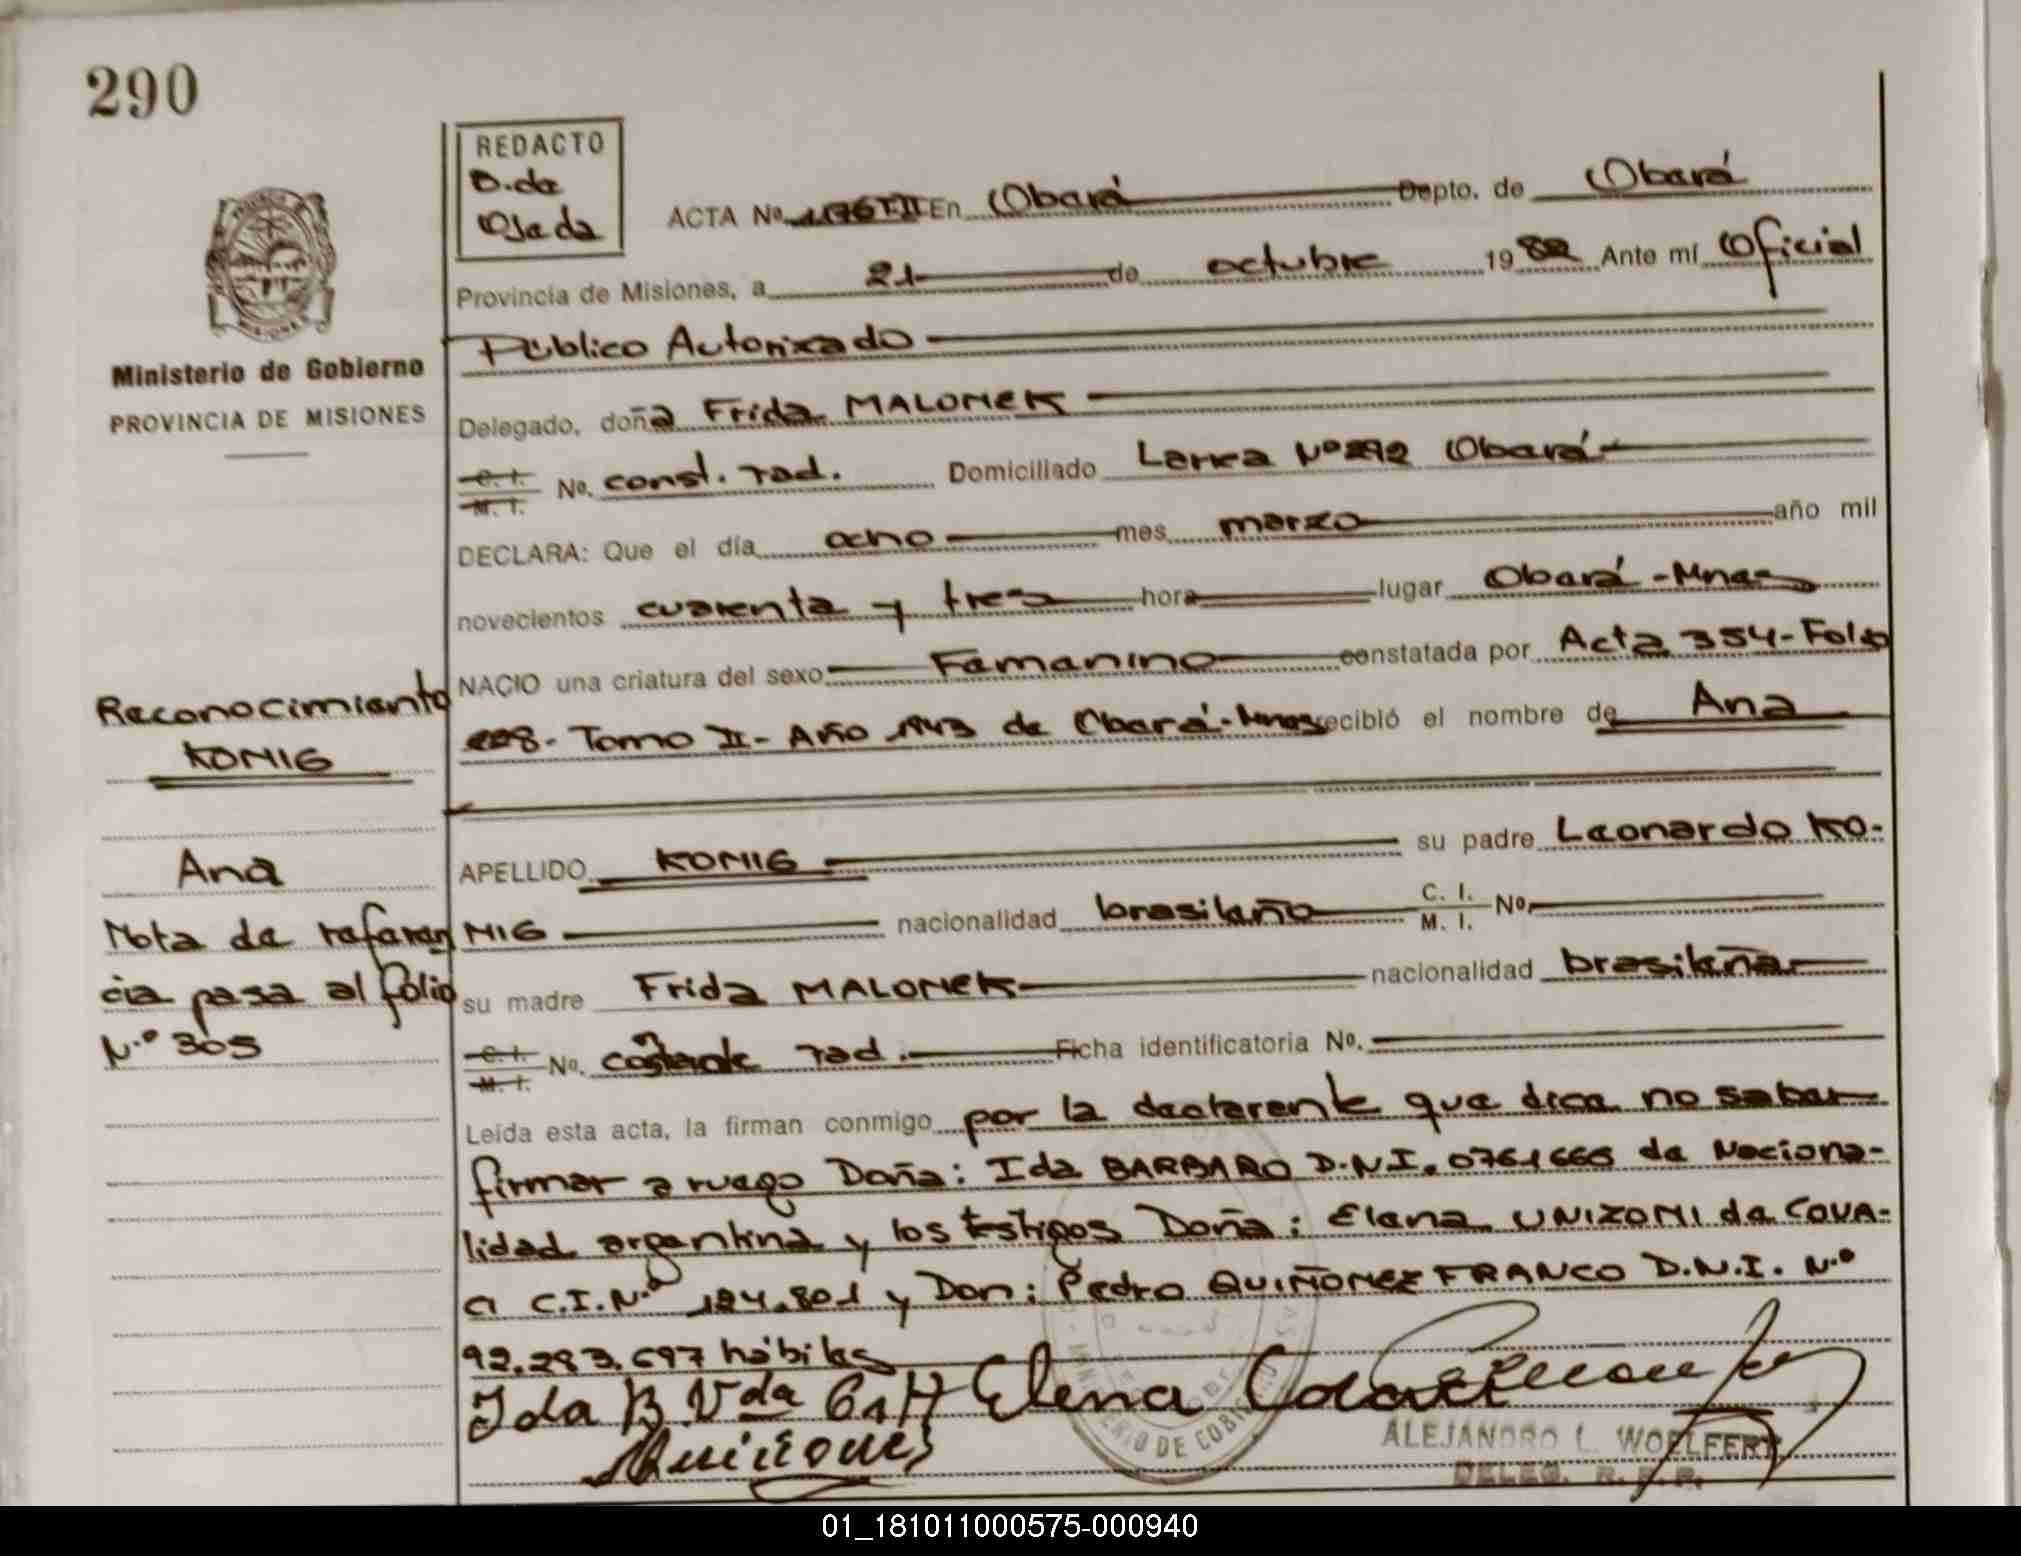 290
REDACTO
D. de
Ojeda
ACTA No. 1176 T.II En Oberá Depto. de Oberá
Provincia de Misiones, a 21 de octubre 1982 Ante mí Oficial
Público Autorizado
Ministerio de Gobierno
PROVINCIA DE MISIONES
Delegado, doña Frida MALONEK
C. I. M. I. No. const. rad. Domiciliado Larrea Nº 292 Oberá
DECLARA: Que el día ocho mes marzo año mil
novecientos cuarenta y tres hora lugar Oberá - Mnes
NACIO una criatura del sexo Femenino constatada por Acta 354 - Folio
228 - Tomo II - Año 1943 de Oberá - Mnes recibió el nombre de Ana
Reconocimiento
KONIG
Ana
Nota de referen
cia pasa al folio
N.º 305
APELLIDO KONIG su padre Leonardo KO-
NIG nacionalidad brasileño C. I. M. I. No.
su madre Frida MALONEK nacionalidad brasileña
C. I. M. I. No. rad. Ficha identificatoria No.
Leída esta acta, la firman conmigo por la declarante que dice no saber
firmar a ruego Doña: Ida BARBARO D.N.I. 0761665 de Naciona-
lidad argentina y los testigos Doña: Elena UNIZONI de COVA-
C.I.N.º 124.801 y Don: Pedro QUIÑONEZ FRANCO D.N.I. N.º
92.283.697 hábiles
Ida B. Vda Elena
Quiñones
MINISTERIO DE GOBIERNO
ALEJANDRO L. WOELFERT
DELEG. R. P. P.
01_181011000575-000940